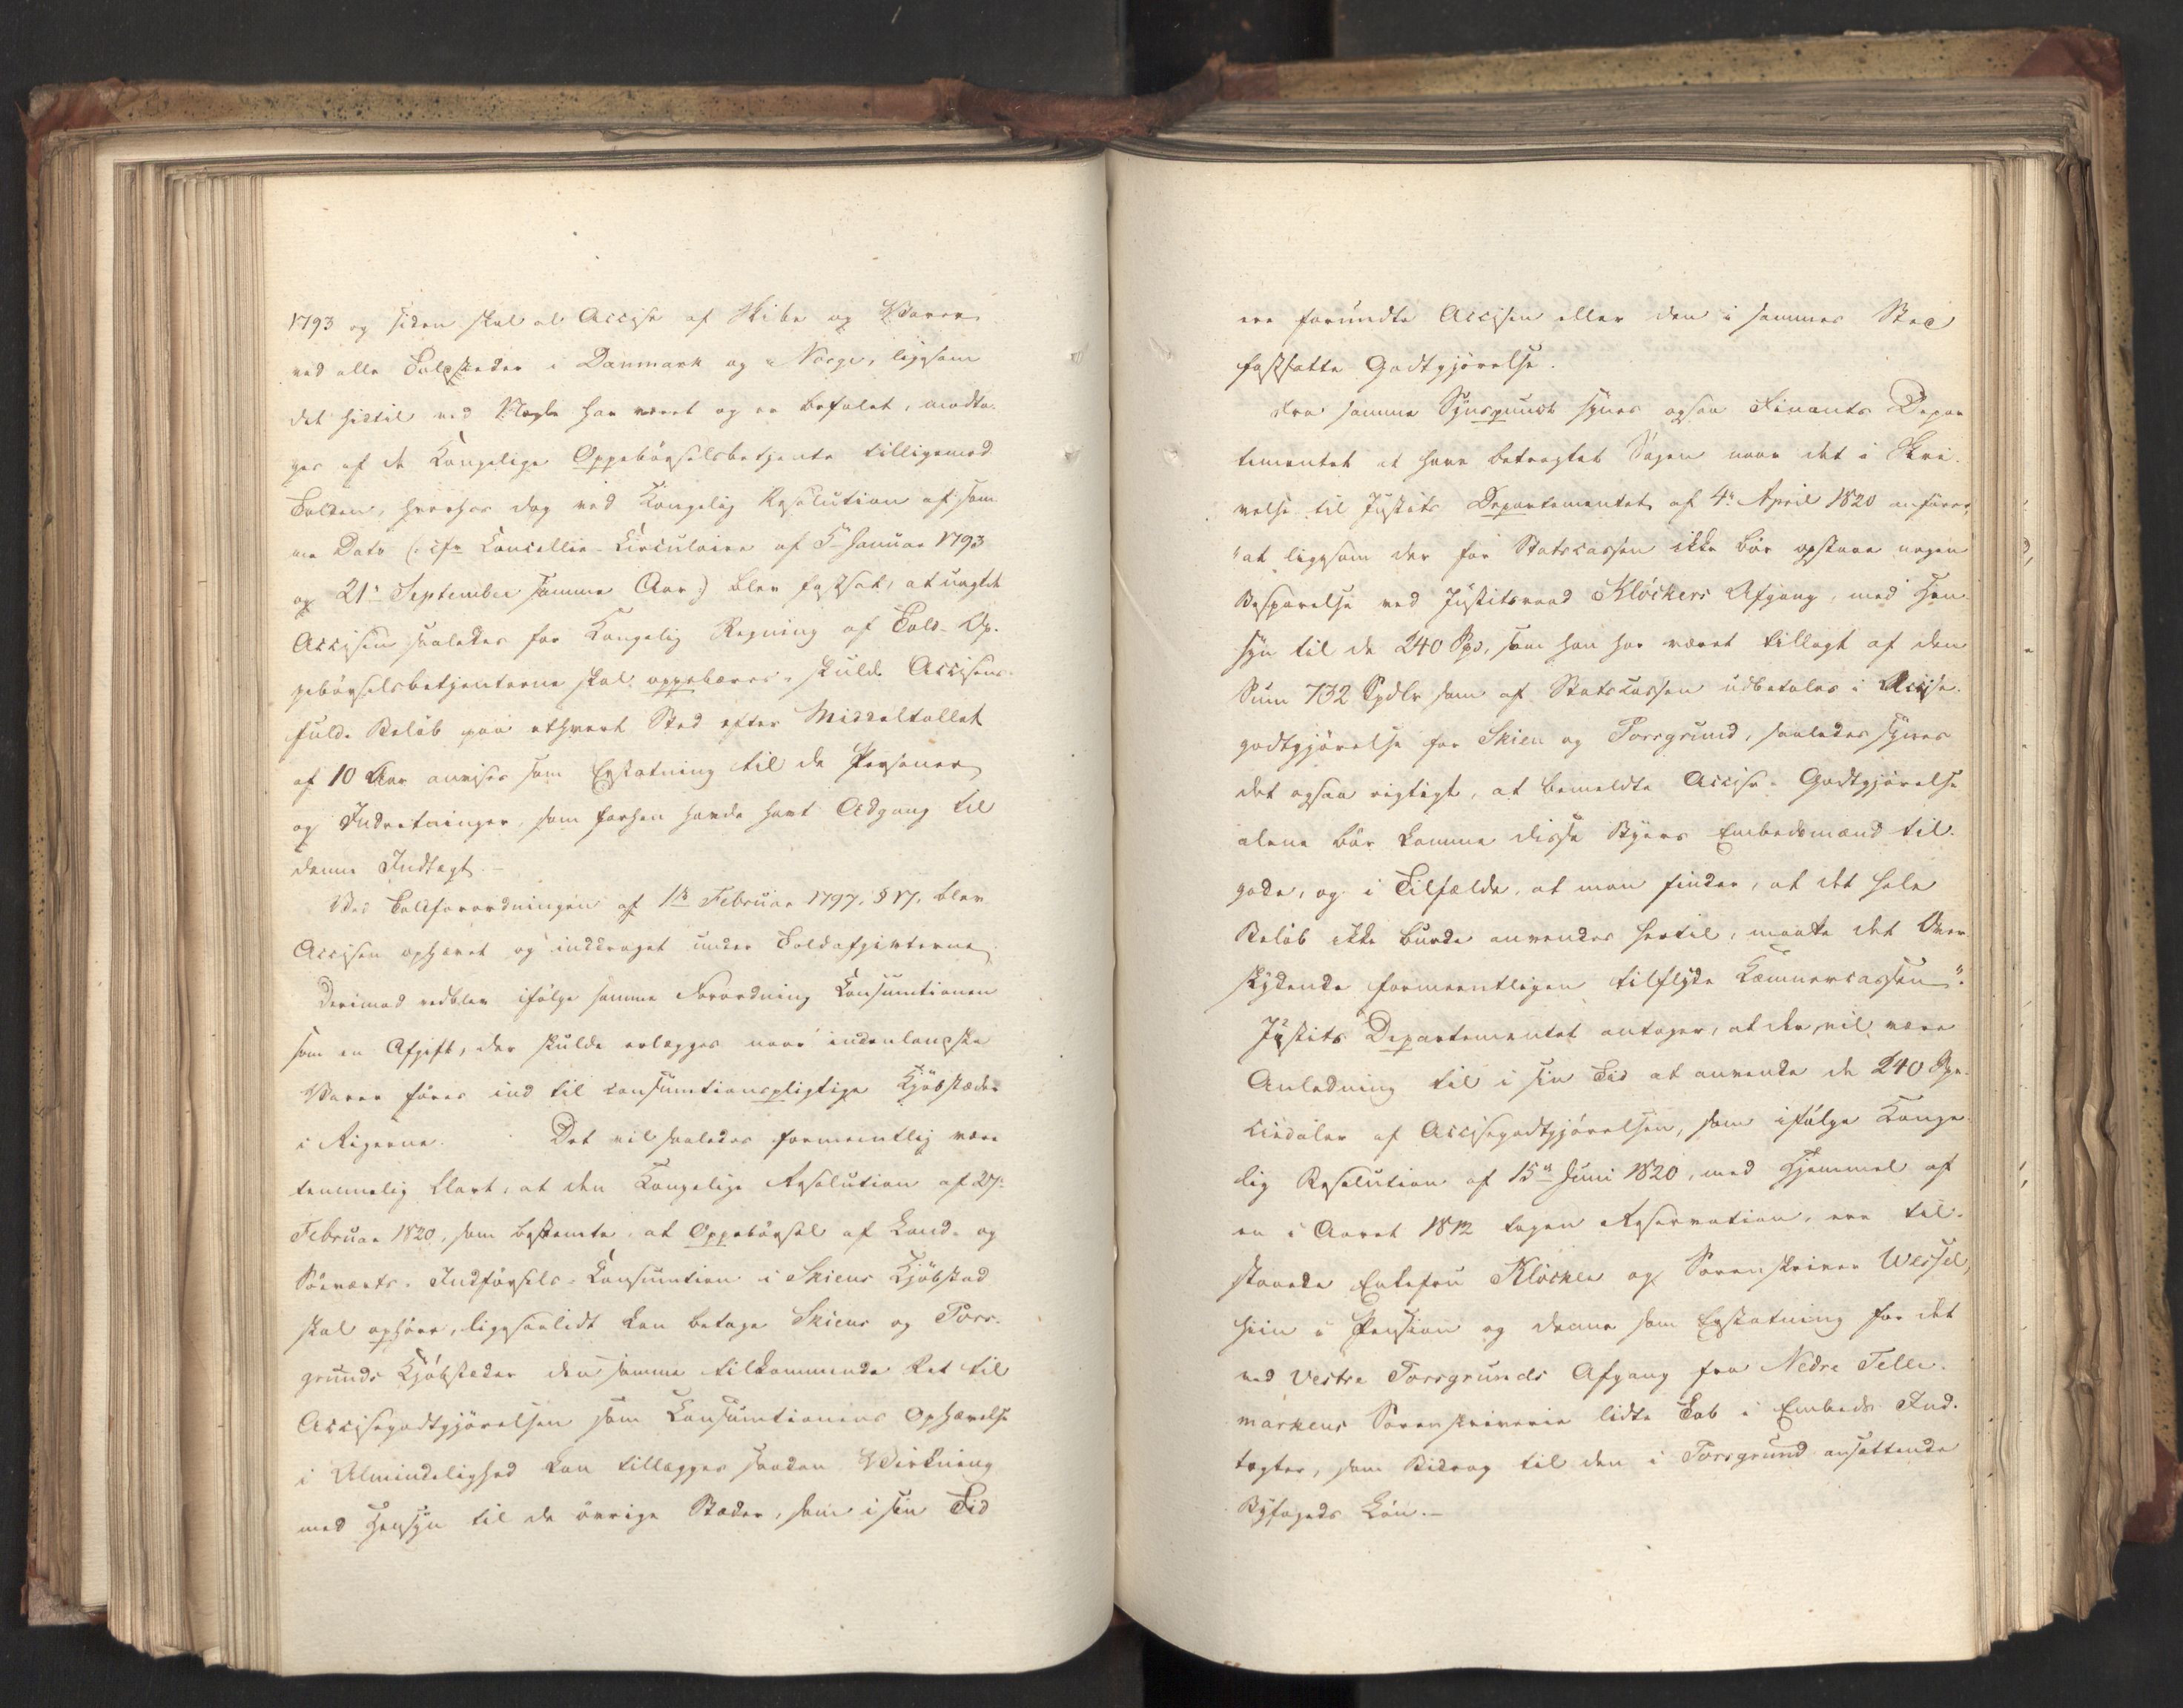 1793 og siden skal al Accise af Skibe og Varer
ved alle Toldsteder i Danmark og Norge, ligesom
det hidtil ved Nogle har været og er befalet, modta-
ges af de Kongelige Oppebørselsbetjente tilligemed
Tolden, hvorhos dog ved Kongelig Resolution af sam-
me Dato (: cfr Cancellie-Circulaire af 5te Januar 1793
og 21de September samme Aar:) blev fastsat, at uagtet
Accisen saaledes for Kongelig Regning af Told-Op-
pebørselsbetjenterne skal oppebæres, skulde Accisens
fulde Beløb paa ethvert Sted efter Middeltallet
af 10 Aar anvises som Erstatning til de Personer
og Indretninger, som forhen havde havt Adgang til
denne Indtægt.
Ved Toldforordningen af 1ste Februar 1797, § 17, blev
Accisen ophævet og inddraget under Toldafgivterne.
Derimod vedblev ifølge samme Forordning Consumtionen
som en Afgift, der skulde erlægges naar indenlandske
Varer føres ind til consumtionspligtige Kjøbstæder
i Rigerne. Det vil saaledes formeentlig være
temmelig klart, at den Kongelige Resolution af 27de
Februar 1820, som bestemte, at Oppebørsel af Land- og
Söeværts-Indførsels-Consumtion i Skiens Kjøbstad
skal ophöre, ligesaalidt kan betage Skiens og Pors-
grunds Kjøbstæder den samme tilkommende Ret til
Accisegodtgjörelsen som Consumtionens Ophævelse
i Almindelighed kan tillægges saadan Virkning
med Hensyn til de övrige Stæder, som i sin Tid
ere forundte Accisen eller den i sammes Sted
fastsatte Godtgjörelse.
Fra samme Synspunct synes ogsaa Finants Depar-
tementet at have betragtet Sagen naar det i Skri-
velse til Justits Departementet af 4de April 1820 anfører,
"at ligesom der for Statscassen ikke bör opstaae nogen
Besparelse ved Justitsraad Klöckers Afgang, med Hen-
syn til de 240 Spd, som han har været tillagt af den
Sum 732 Spdlr som af Statscassen udbetales i Accise-
godtgjörelse for Skien og Porsgrund, saaledes synes
det ogsaa rigtigt, at bemeldte Accise-Godtgjörelse
alene bör komme disse Byers Embedsmænd til-
gode, og i Tilfælde, at man finder, at det hele
Belöb ikke burde anvendes hertil, maatte det Over-
skydende formeentligen tilflyde Kæmnercassen".
Justits Departementet antager, at der vil være
Anledning til i sin Tid at anvende de 240 Spe-
ciedaler af Accisegodtgjörelsen, som ifølge Konge-
lig Resolution af 15de Juni 1820, med Hjemmel af
en i Aaret 1812 tagen Reservation, ere til-
staaede Enkefru Klöcker og Sorenskriver Wessel,
hiin i Pension og denne som Erstatning for det
ved Vestre Porsgrunds Afgang fra Nedre Telle-
markens Sorenskriverie lidte Tab i Embeds Ind-
tægter, som Bidrag til den i Porsgrund ansættende
Byfogeds Lön.